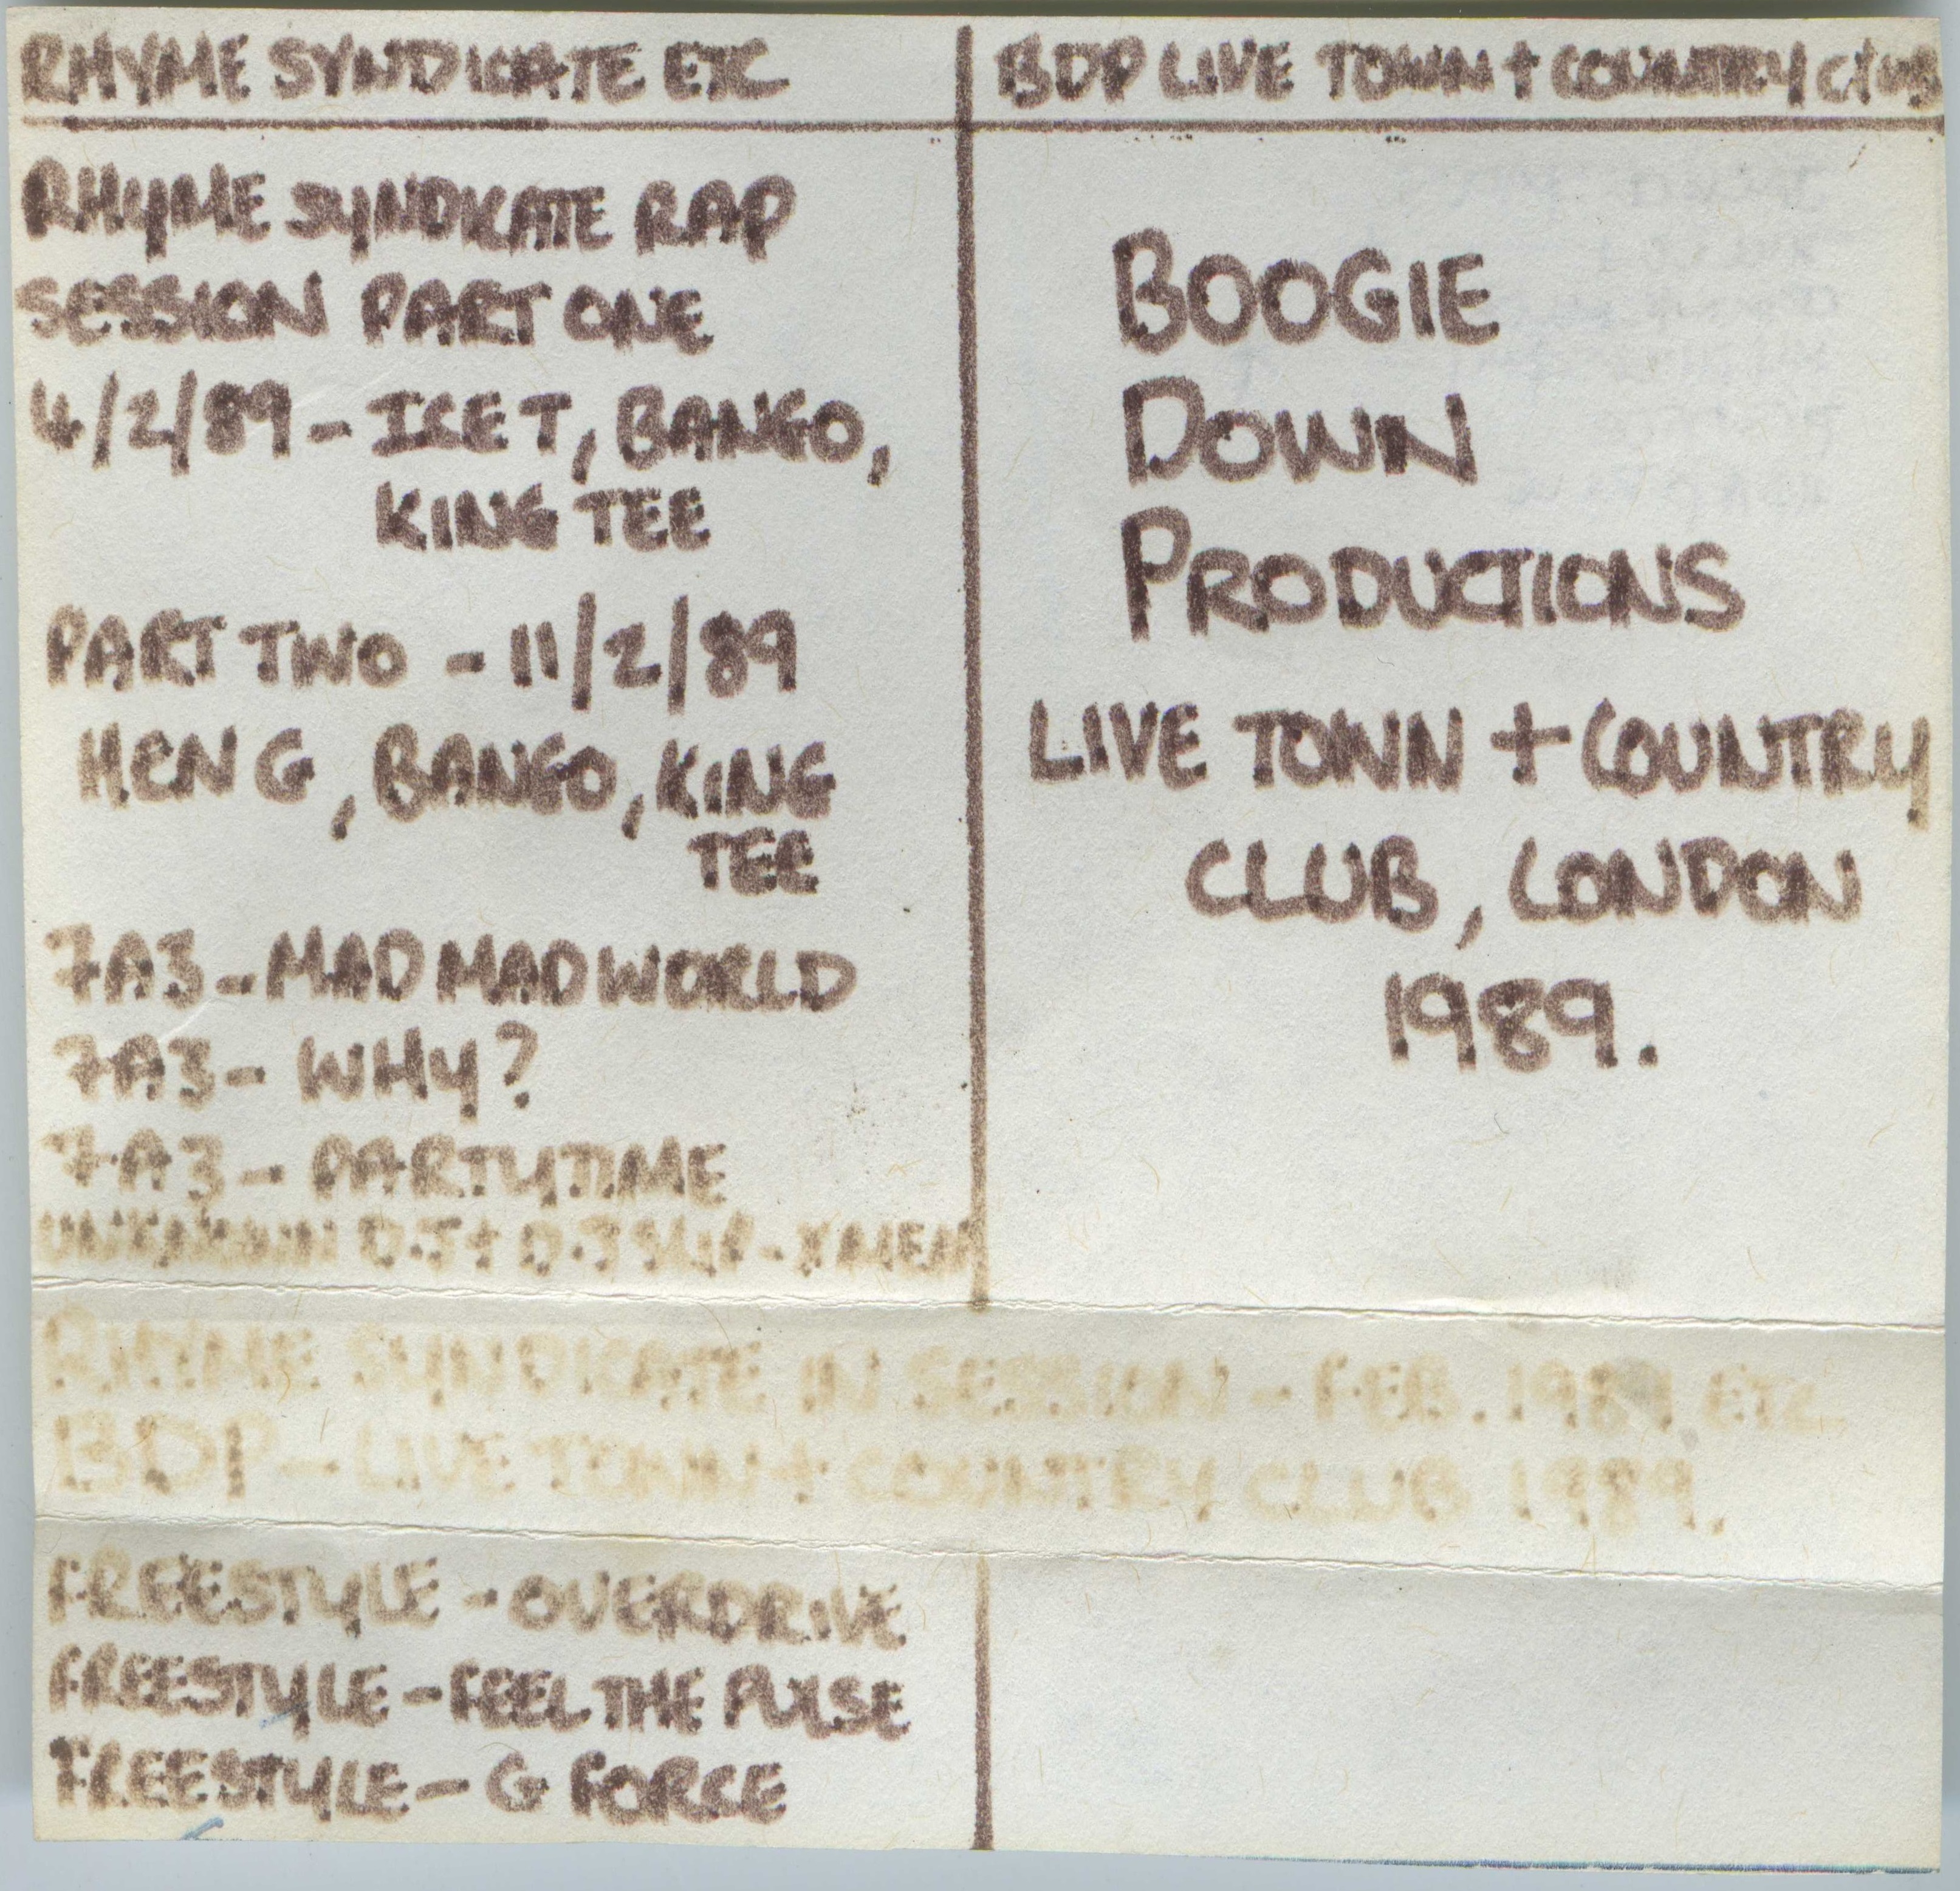 RHYME SYNDICATE ETC
RHYME SYNDICATE RAP
SESSION PART ONE
4/2/89 - ICE T, BANGO,
KING TEE
PART TWO - 11/2/89
HEN G, BANGO, KING
TEE
7A3 - MAD MAD WORLD
7A3 - WHY?
7A3 - PARTYTIME
UNKNOWN D.J + D.J SLIP - X MEN
BDP LIVE TOWN + COUNTRY CLUB
BOOGIE
DOWN
PRODUCTIONS
LIVE TOWN + COUNTRY
CLUB, LONDON
1989.
RHYME SYNDICATE IN SESSION - FEB. 1989 ETC.
BDP - LIVE TOWN + COUNTRY CLUB 1989.
FREESTYLE - OVERDRIVE
FREESTYLE - FEEL THE PULSE
FREESTYLE - G FORCE